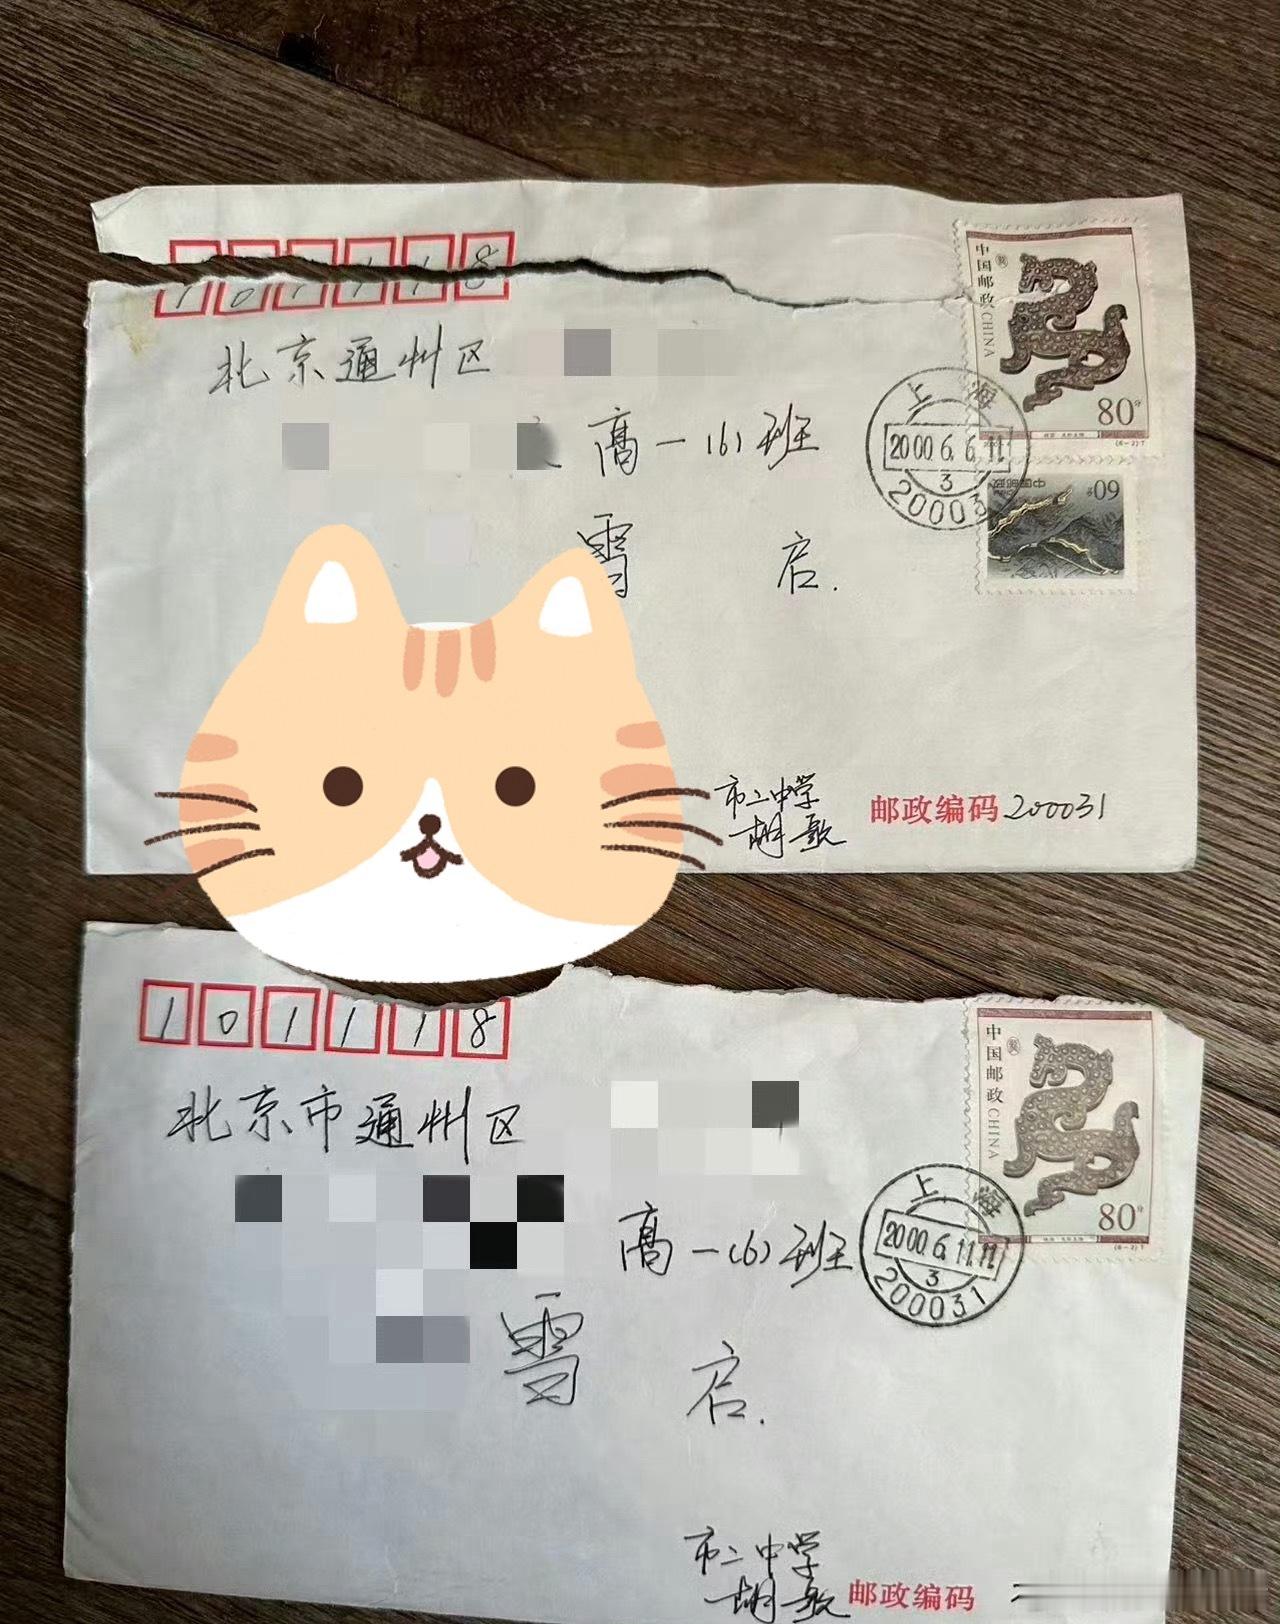 101118
北京通州区
高一(6)班
雪 启.
市二中学
胡歌
邮政编码 200031
中国邮政 CHINA
80分
中国邮政
60分
上海
2000.6.6.11
3
200031
101118
北京市通州区
高一(6)班
雪 启.
市二中学
胡歌
邮政编码
中国邮政 CHINA
80分
上海
2000.6.11.11
3
200031